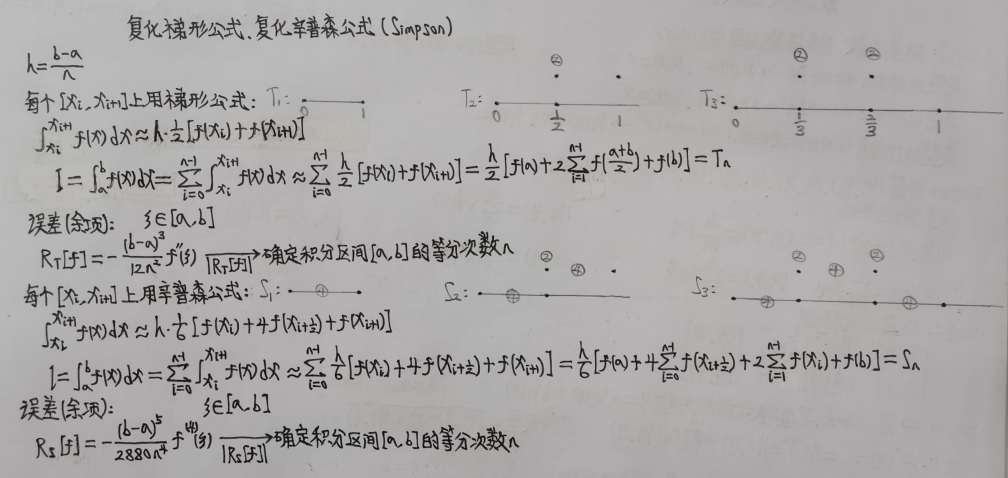 复化梯形公式、复化辛普森公式(Simpson)
h=\frac{b-a}{n}
每个[x_i,x_{i+1}]上用梯形公式: T_1: 0 1 T_2: 0 \frac{1}{2} 1 ② T_3: 0 \frac{1}{3} \frac{2}{3} 1 ② ②
\int_{x_i}^{x_{i+1}} f(x)dx≈h·\frac{1}{2}[f(x_i)+f(x_{i+1})]
I=\int_a^b f(x)dx=\sum_{i=0}^{n-1}\int_{x_i}^{x_{i+1}} f(x)dx≈\sum_{i=0}^{n-1}\frac{h}{2}[f(x_i)+f(x_{i+1})]=\frac{h}{2}[f(a)+2\sum_{i=1}^{n-1}f(\frac{a+b}{2})+f(b)]=T_n
误差(余项): ξ∈[a,b]
R_T[f]=-\frac{(b-a)^3}{12n^2}f''(ξ) \xrightarrow[|R_T[f]|]{} 确定积分区间[a,b]的等分次数n
每个[x_i,x_{i+1}]上用辛普森公式: S_1: ④ S_2: ④ ② ④ S_3: ④ ② ④ ② ④
\int_{x_i}^{x_{i+1}} f(x)dx≈h·\frac{1}{6}[f(x_i)+4f(x_{i+\frac{1}{2}})+f(x_{i+1})]
I=\int_a^b f(x)dx=\sum_{i=0}^{n-1}\int_{x_i}^{x_{i+1}} f(x)dx≈\sum_{i=0}^{n-1}\frac{h}{6}[f(x_i)+4f(x_{i+\frac{1}{2}})+f(x_{i+1})]=\frac{h}{6}[f(a)+4\sum_{i=0}^{n-1}f(x_{i+\frac{1}{2}})+2\sum_{i=1}^{n-1}f(x_i)+f(b)]=S_n
误差(余项): ξ∈[a,b]
R_S[f]=-\frac{(b-a)^5}{2880n^4}f^{(4)}(ξ) \xrightarrow[|R_S[f]|]{} 确定积分区间[a,b]的等分次数n